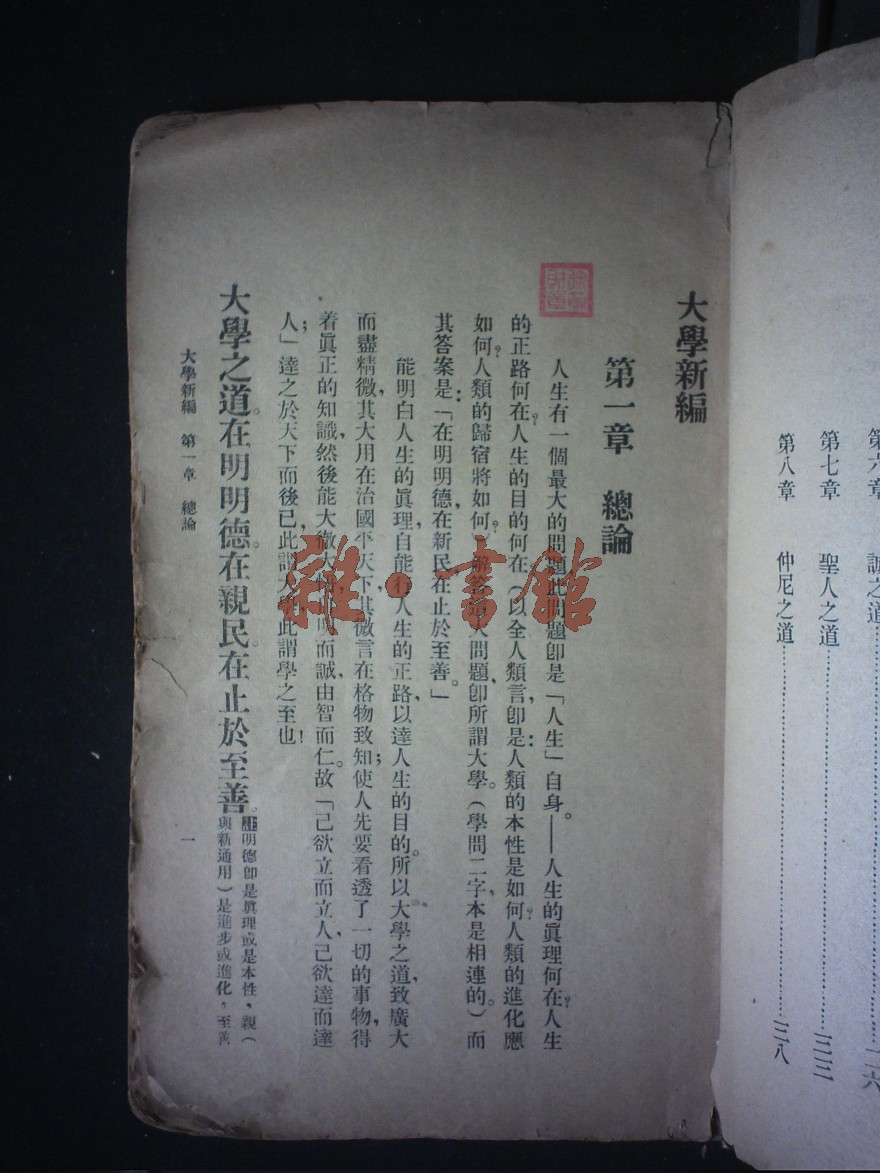 第六章 誠之道……一六
第七章 聖人之道……三三
第八章 仲尼之道……三八
大學新編
第一章 總論
人生有一個最大的問題此問題卽是「人生」自身。——人生的眞理何在？人生
的正路何在？人生的目的何在？（以全人類言，卽是：人類的本性是如何？人類的進化應
如何？人類的歸宿將如何？）解答這人問題，卽所謂大學。（學問二字，本是相連的。）而
其答案是：「在明明德，在新民，在止於至善。」
能明白人生的眞理，自能行人生的正路，以達人生的目的。所以大學之道，致廣大
而盡精微，其大用在治國平天下，其微言在格物致知；使人先要看透了一切的事物，得
着眞正的知識，然後能大徹大悟，明而誠，由智而仁。故「己欲立而立人，己欲達而達
人」；達之於天下而後已，此謂大學，此謂學之至也！
大學之道。在明明德。在親民。在止於至善。註明德卽是眞理或是本性，親（
與新通用）是進步或進化，至善
大學新編 第一章 總論 一
雜·書館